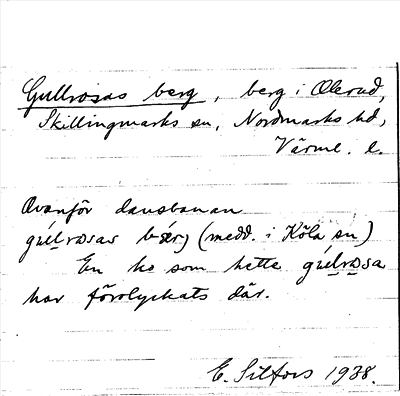 Gullrosas berg, berg i Ölerud,
Skillingmarks sn, Nordmarks hd,
Värml. l.
Ovanför dansbanan
gúl̲rωsas bærj (medd. i Köla sn)
En ko som hette gúl̲rωsa
har förolyckats där.
E. Silfors 1938.